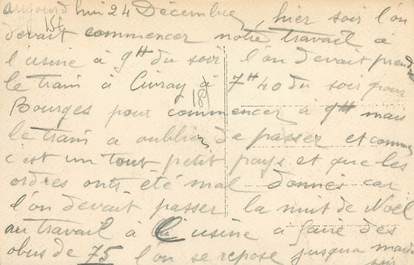 aujourd'hui 24 Décembre, hier soir l'on
devait commencer notre travail a
l'usine à 9H du soir l'on devait prendre
le train à Civray à 7H40 du soir pour
Bourges pour commencer à 9H mais
le train a oublier de passer et comme
c'est un tout petit pays et que les
ordres onts été mal donnés car
l'on devait passer la nuit de Noël
au travail a l'usine à faire des
obus de 75 l'on se repose jusqua